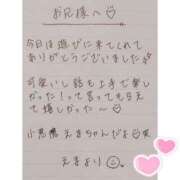 お兄様へ♡
今日は遊びに来てくれて
ありがとうございました
可愛いし話も上手で楽し
かった！って言ってもらえ
て嬉しかった〜♡
小悪魔えまちゃんだよ笑
えまより